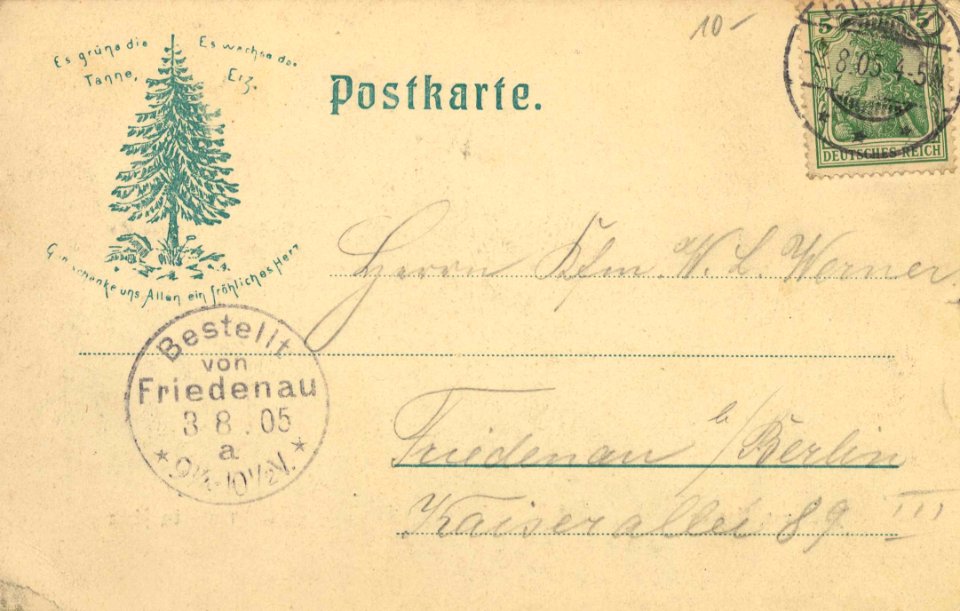 10-
Es grüne die Tanne,
Es wachse das Erz.
Gott schenke uns Allen ein fröhliches Herz
Postkarte.
GRUND
8.05. 4-5N
5 5
DEUTSCHES REICH
Herrn Kfm. W. L. Werner,
Bestellt
von
Friedenau
3 8. 05
a
* 9¼-10½V. *
Friedenau b/Berlin
Kaiserallee 89. III